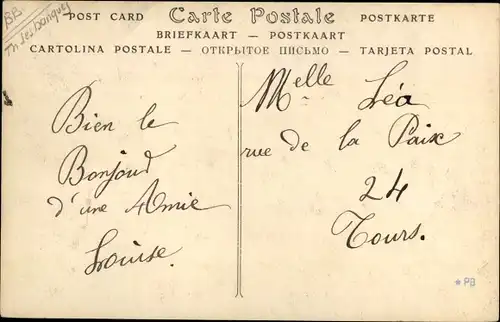 POST CARD Carte Postale POSTKARTE
BRIEFKAART — POSTKAART
CARTOLINA POSTALE — ОТКРЫТОЕ ПИСЬМО — TARJETA POSTAL
BB.
Bien le
Bonjoud
d'une Amie
Louise.
Melle Léa
rue de la Paix
24
Tours.
* PB